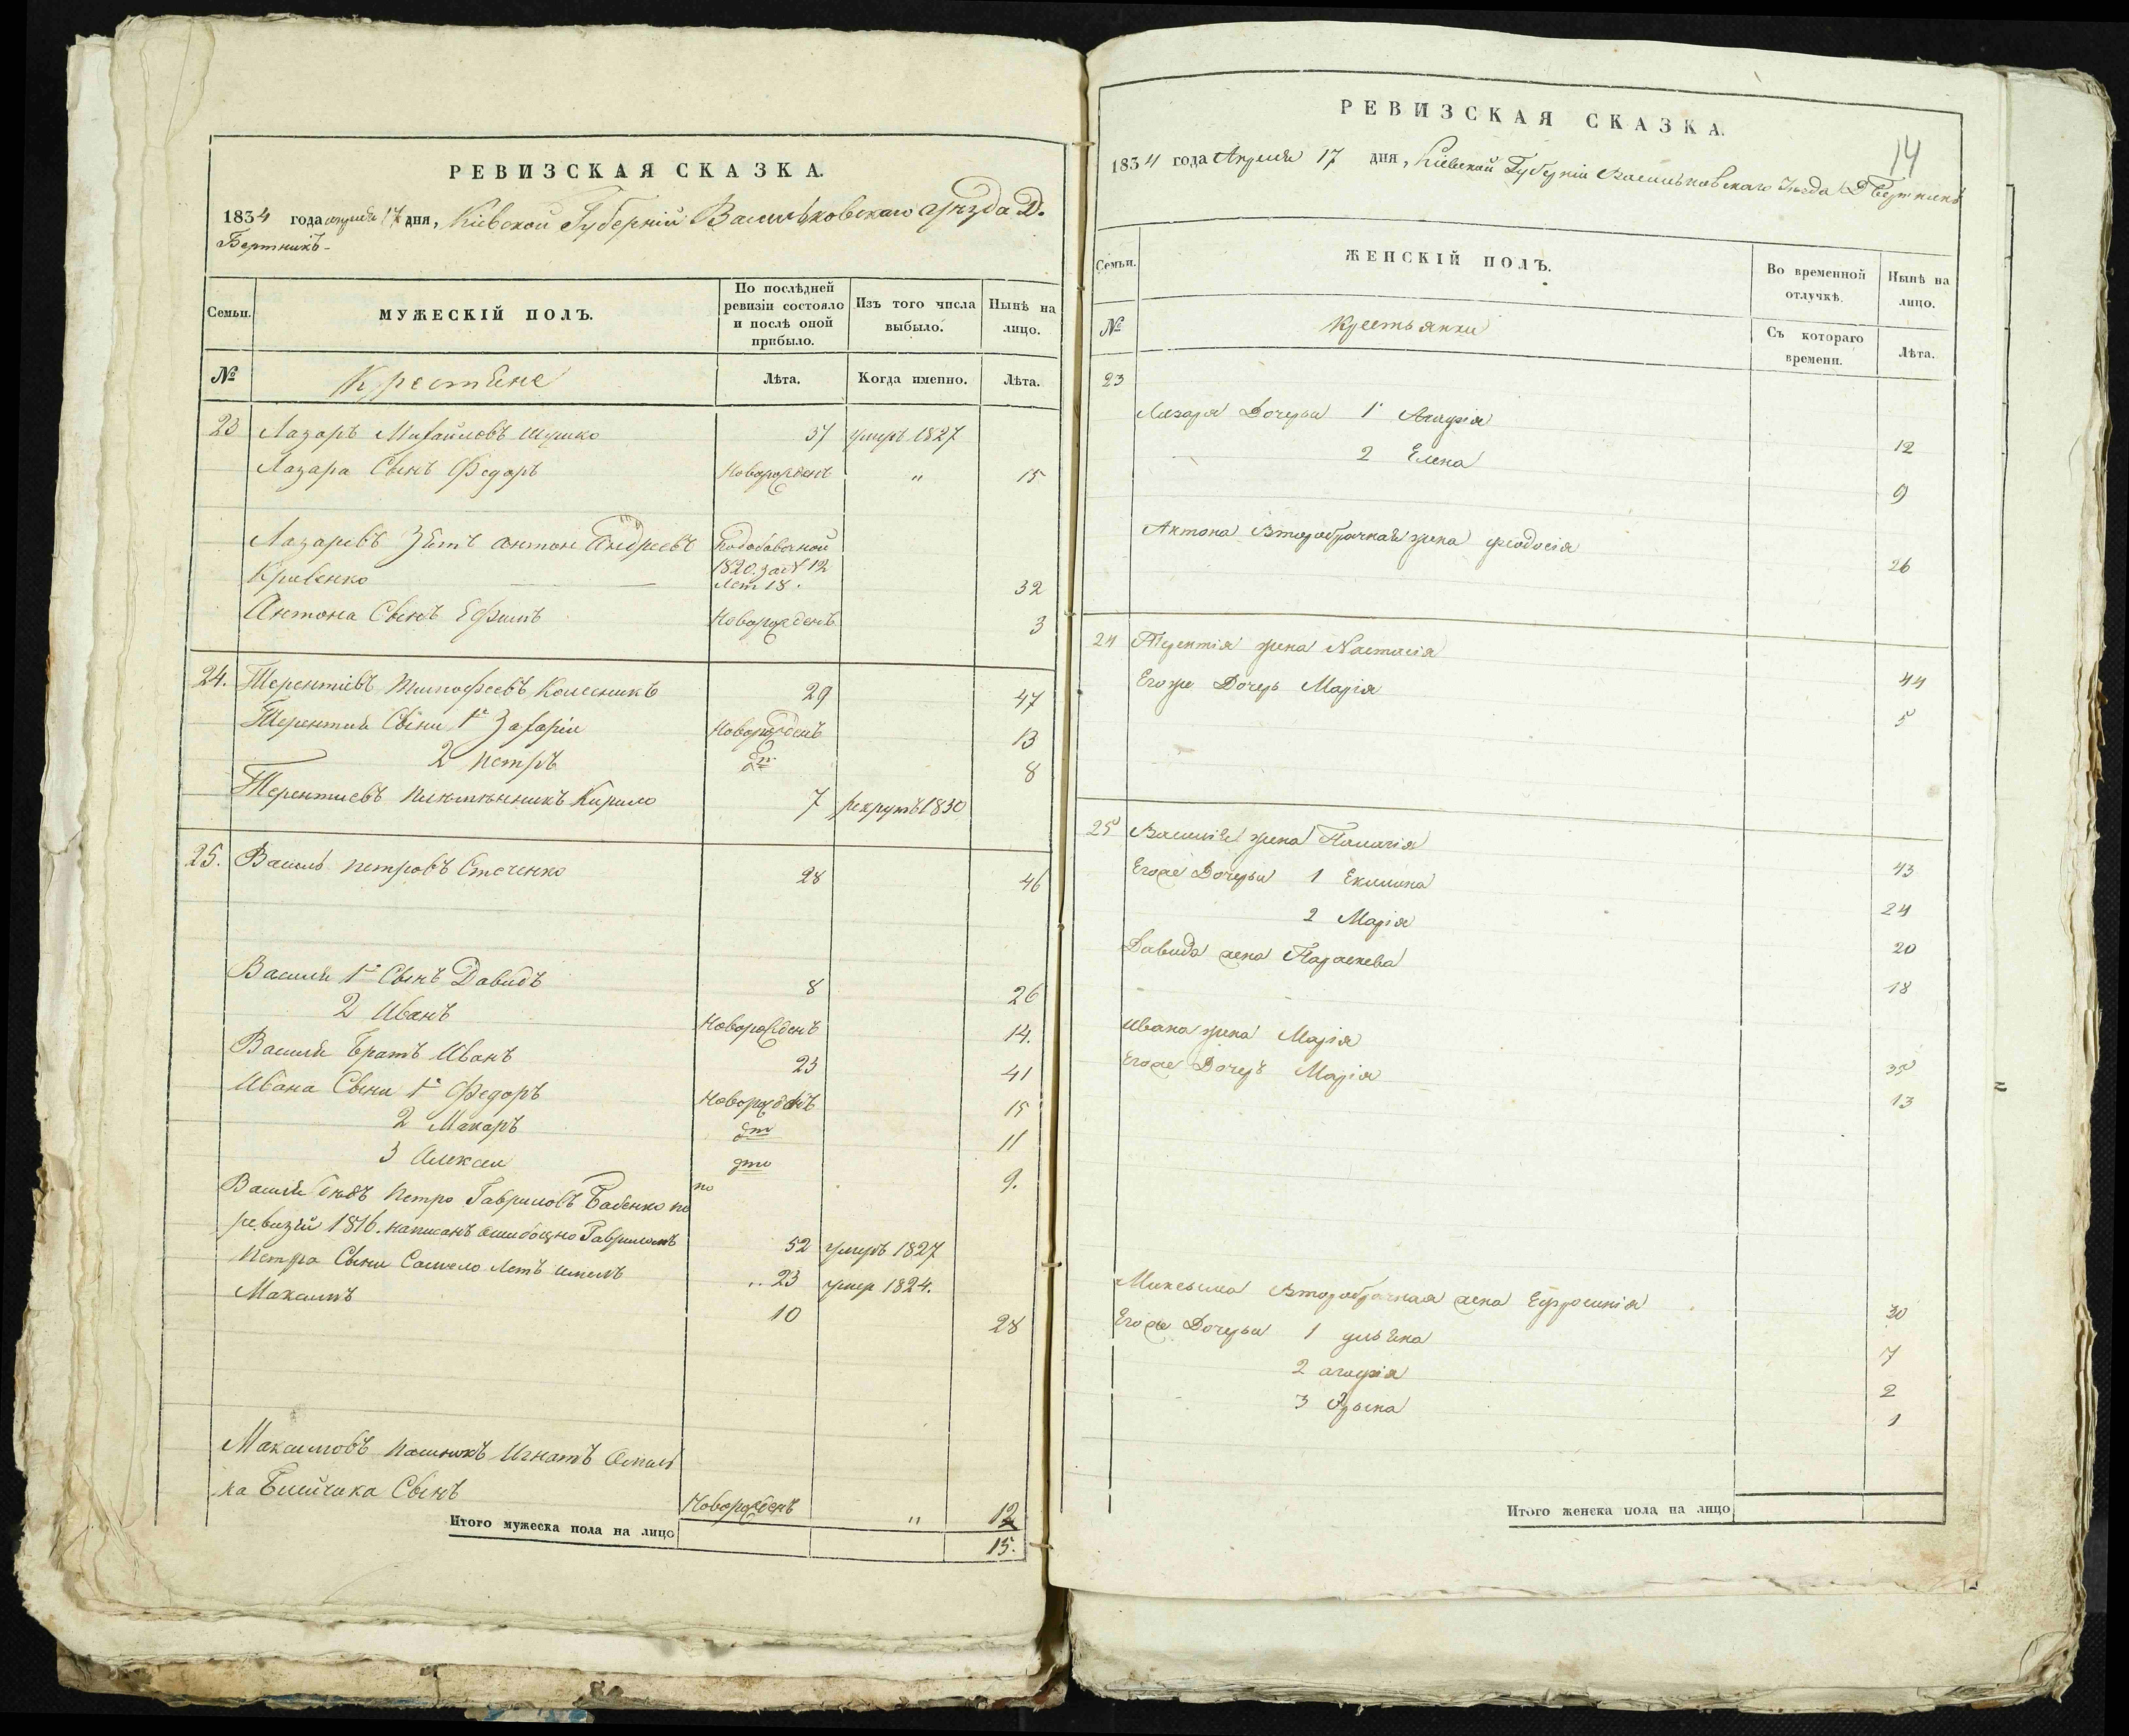 РЕВИЗСКАЯ СКАЗКА.
1834 года апреля 17 дня, Кіевской Губерніи Васильковскаго уѣзда Д.
Бертникъ
Семьи.
МУЖЕСКІЙ ПОЛЪ.
По послѣдней ревизіи состояло и послѣ оной прибыло.
Изъ того числа выбыло.
Нынѣ на лицо.
№ Крестяне Лѣта. Когда именно. Лѣта.
23 Лазаръ Михайловъ 37 умеръ 1827
Лазара Сынъ Федоръ Новорожденъ " 15
Лазаревъ Зять Антон Андреевъ
Кравенко 1820. за № 12 Лет 18. 32
Антона Сынъ Ефимъ Новорожденъ 3
24. Терентіевъ Тимофеевъ Колесникъ 29 47
Терентия Сыни 1й Захарій Новорожденъ 13
2 Петръ дто 8
Терентиевъ племянникъ Кирило 7 рекрутъ 1830
25. Василь Петровъ Стеченко 28 46
Василя 1й Сынъ Давидъ 8 26
2 Иванъ Новорожденъ 14.
Василя Братъ Иванъ 23 41
Ивана Сыни 1й Федоръ Новорожденъ 15
2 Макаръ дто 11
3 Алексей дто 9.
Василя Петро Гавриловъ Бабенко по
ревизій 1816. написанъ ошибочно Гавриломъ 52 умеръ 1827
Петра Сыни Самуело Летъ 23 умер 1824.
Максимъ 10 28
Максимовъ Игнатъ
ка Сынъ Новорожденъ " 12
Итого мужеска пола на лицо 15.
РЕВИЗСКАЯ СКАЗКА.
14
1834 года Апреля 17 дня, Кіевской Губерніи Васильковскаго Уѣзда Д Бертникъ
Семьи.
ЖЕНСКІЙ ПОЛЪ.
Во временной отлучкѣ.
Нынѣ на лицо.
№ Крестьянки Съ котораго времени. Лѣта.
23
Лазаря Дочерьи 1й Агафія 12
2 Елена 9
Антона Второбрачная жена Феодосія 26
24 Терентія жена Настасія 44
Егоже Дочерь Марія 5
25 Василія жена Палагія 43
Егоже Дочерьи 1 Екилина 24
2 Марія 20
Давида жена Параскева 18
Ивана жена Марія 35
Егоже Дочеръ Марія 13
Максима Второбрачная жена Ефросинія 30
Егоже Дочерьи 1 Ульяна 7
2 агафія 2
3 1
Итого женска пола на лицо